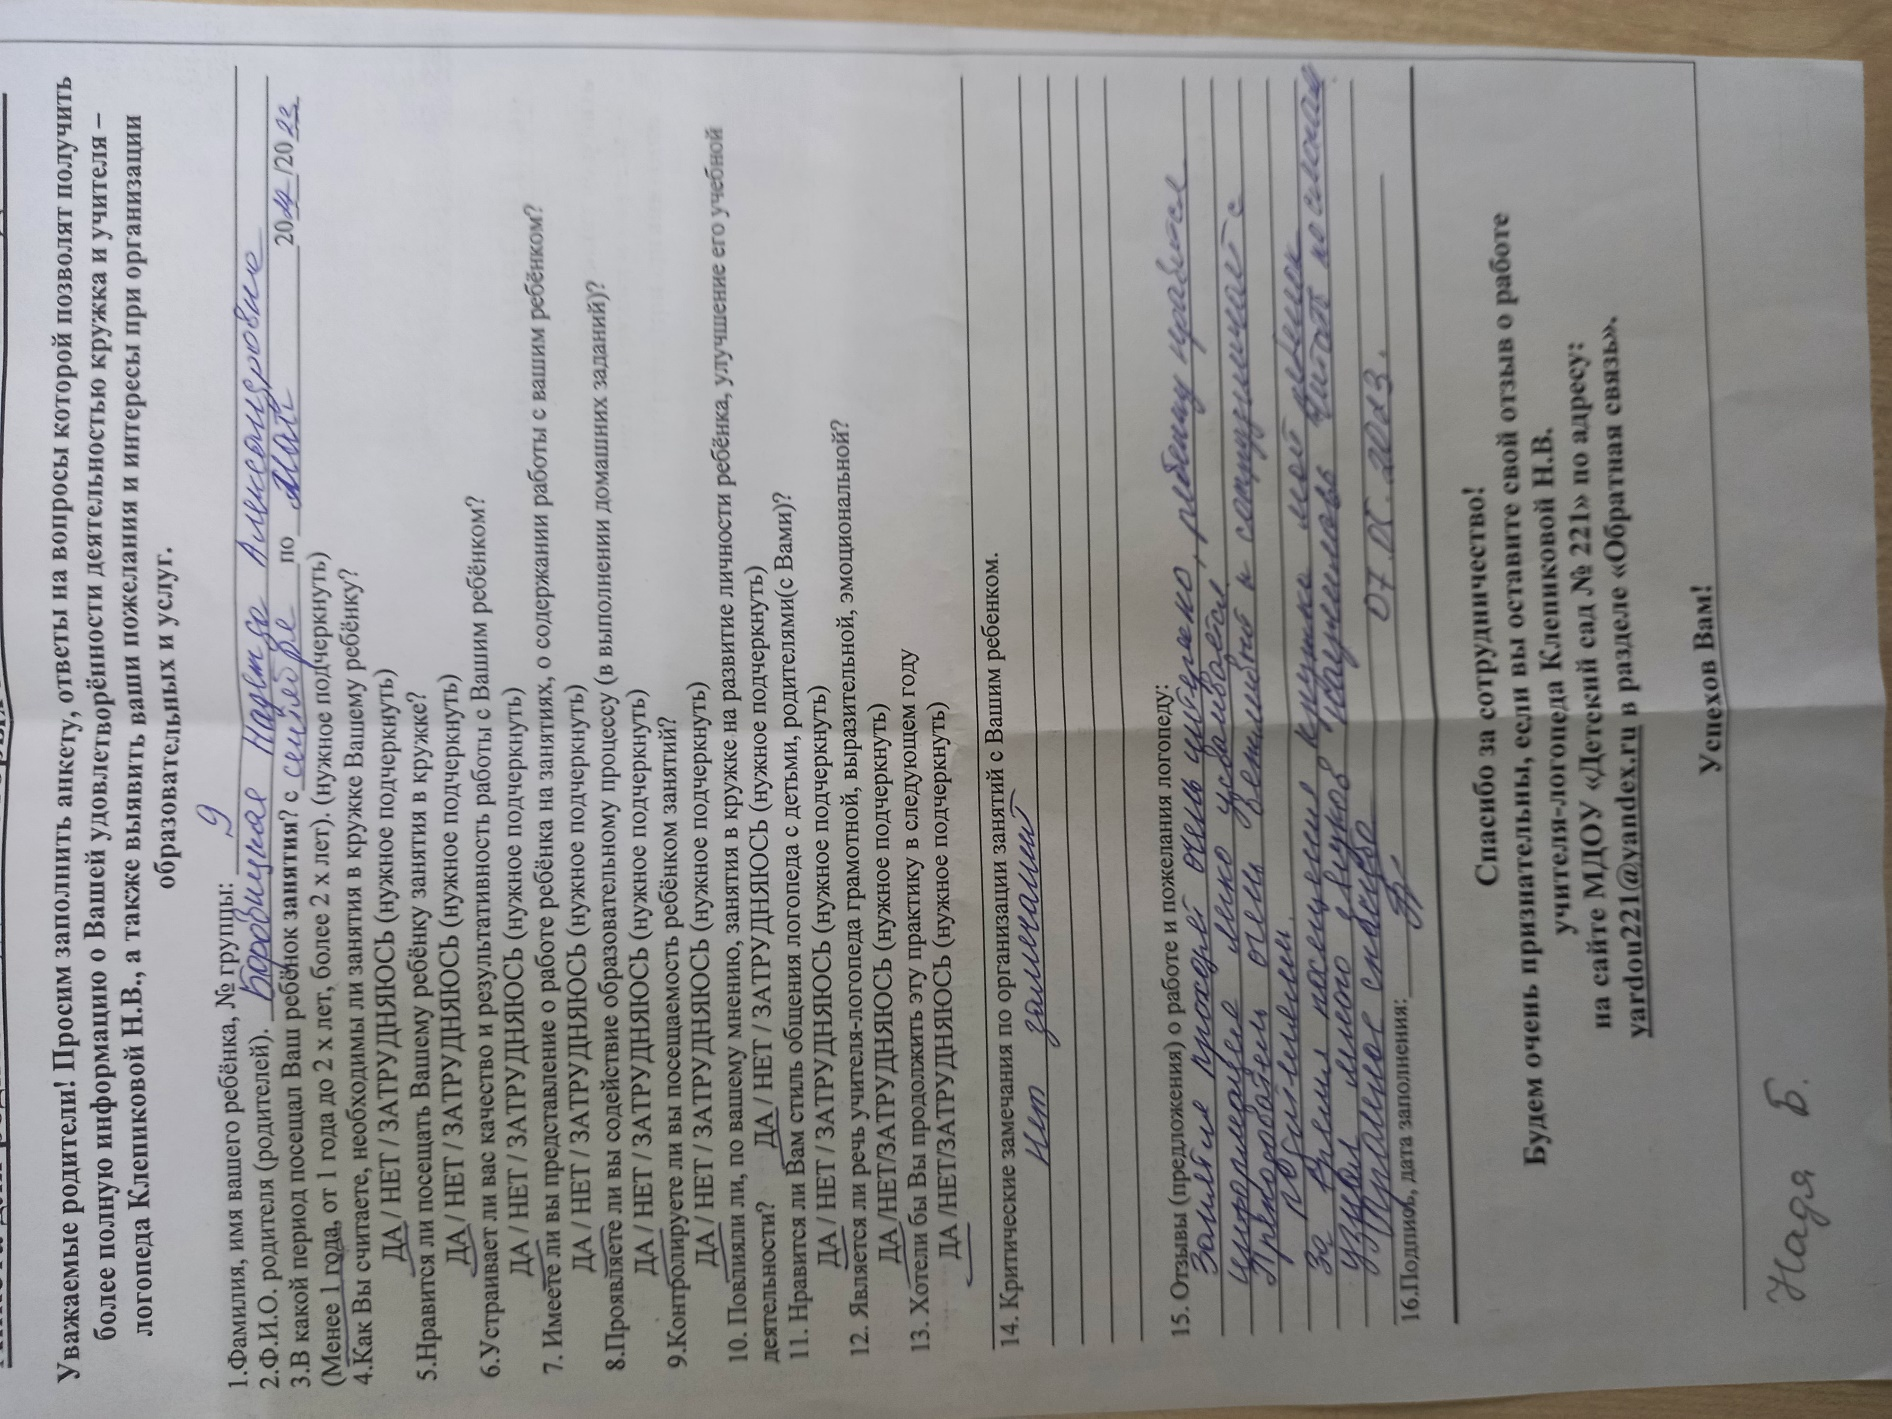 Уважаемые родители! Просим заполнить анкету, ответы на вопросы которой позволят получить
более полную информацию о Вашей удовлетворённости деятельностью кружка и учителя –
логопеда Клепиковой Н.В., а также выявить ваши пожелания и интересы при организации
образовательных и услуг.
1.Фамилия, имя вашего ребёнка, № группы: 9
2.Ф.И.О. родителя (родителей). Боровицкая Надежда Александровна
3.В какой период посещал Ваш ребёнок занятия? с сентября по май 20 /20 23
(Менее 1 года, от 1 года до 2 х лет, более 2 х лет). (нужное подчеркнуть)
4.Как Вы считаете, необходимы ли занятия в кружке Вашему ребёнку?
ДА / НЕТ / ЗАТРУДНЯЮСЬ (нужное подчеркнуть)
5.Нравится ли посещать Вашему ребёнку занятия в кружке?
ДА / НЕТ / ЗАТРУДНЯЮСЬ (нужное подчеркнуть)
6.Устраивает ли вас качество и результативность работы с Вашим ребёнком?
ДА / НЕТ / ЗАТРУДНЯЮСЬ (нужное подчеркнуть)
7. Имеете ли вы представление о работе ребёнка на занятиях, о содержании работы с вашим ребёнком?
ДА / НЕТ / ЗАТРУДНЯЮСЬ (нужное подчеркнуть)
8.Проявляете ли вы содействие образовательному процессу (в выполнении домашних заданий)?
ДА / НЕТ / ЗАТРУДНЯЮСЬ (нужное подчеркнуть)
9.Контролируете ли вы посещаемость ребёнком занятий?
ДА / НЕТ / ЗАТРУДНЯЮСЬ (нужное подчеркнуть)
10. Повлияли ли, по вашему мнению, занятия в кружке на развитие личности ребёнка, улучшение его учебной
деятельности? ДА / НЕТ / ЗАТРУДНЯЮСЬ (нужное подчеркнуть)
11. Нравится ли Вам стиль общения логопеда с детьми, родителями(с Вами)?
ДА / НЕТ / ЗАТРУДНЯЮСЬ (нужное подчеркнуть)
12. Является ли речь учителя-логопеда грамотной, выразительной, эмоциональной?
ДА /НЕТ/ЗАТРУДНЯЮСЬ (нужное подчеркнуть)
13. Хотели бы Вы продолжить эту практику в следующем году
ДА /НЕТ/ЗАТРУДНЯЮСЬ (нужное подчеркнуть)
14. Критические замечания по организации занятий с Вашим ребенком.
Нет замечаний
15. Отзывы (предложения) о работе и пожелания логопеду:
Занятие проходят очень интересно, ребенку нравится
информация легко усваивается.
Преподаватель очень вежливый и коммуникабельный с
родителями.
За время посещения кружка мой ребенок
узнал много звуков научилась читать по слогам
Огромное спасибо
16.Подпись, дата заполнения: 07.06.2023.
Спасибо за сотрудничество!
Будем очень признательны, если вы оставите свой отзыв о работе
учителя-логопеда Клепиковой Н.В.
на сайте МДОУ «Детский сад № 221» по адресу:
yardou221@yandex.ru в разделе «Обратная связь».
Успехов Вам!
Надя Б.